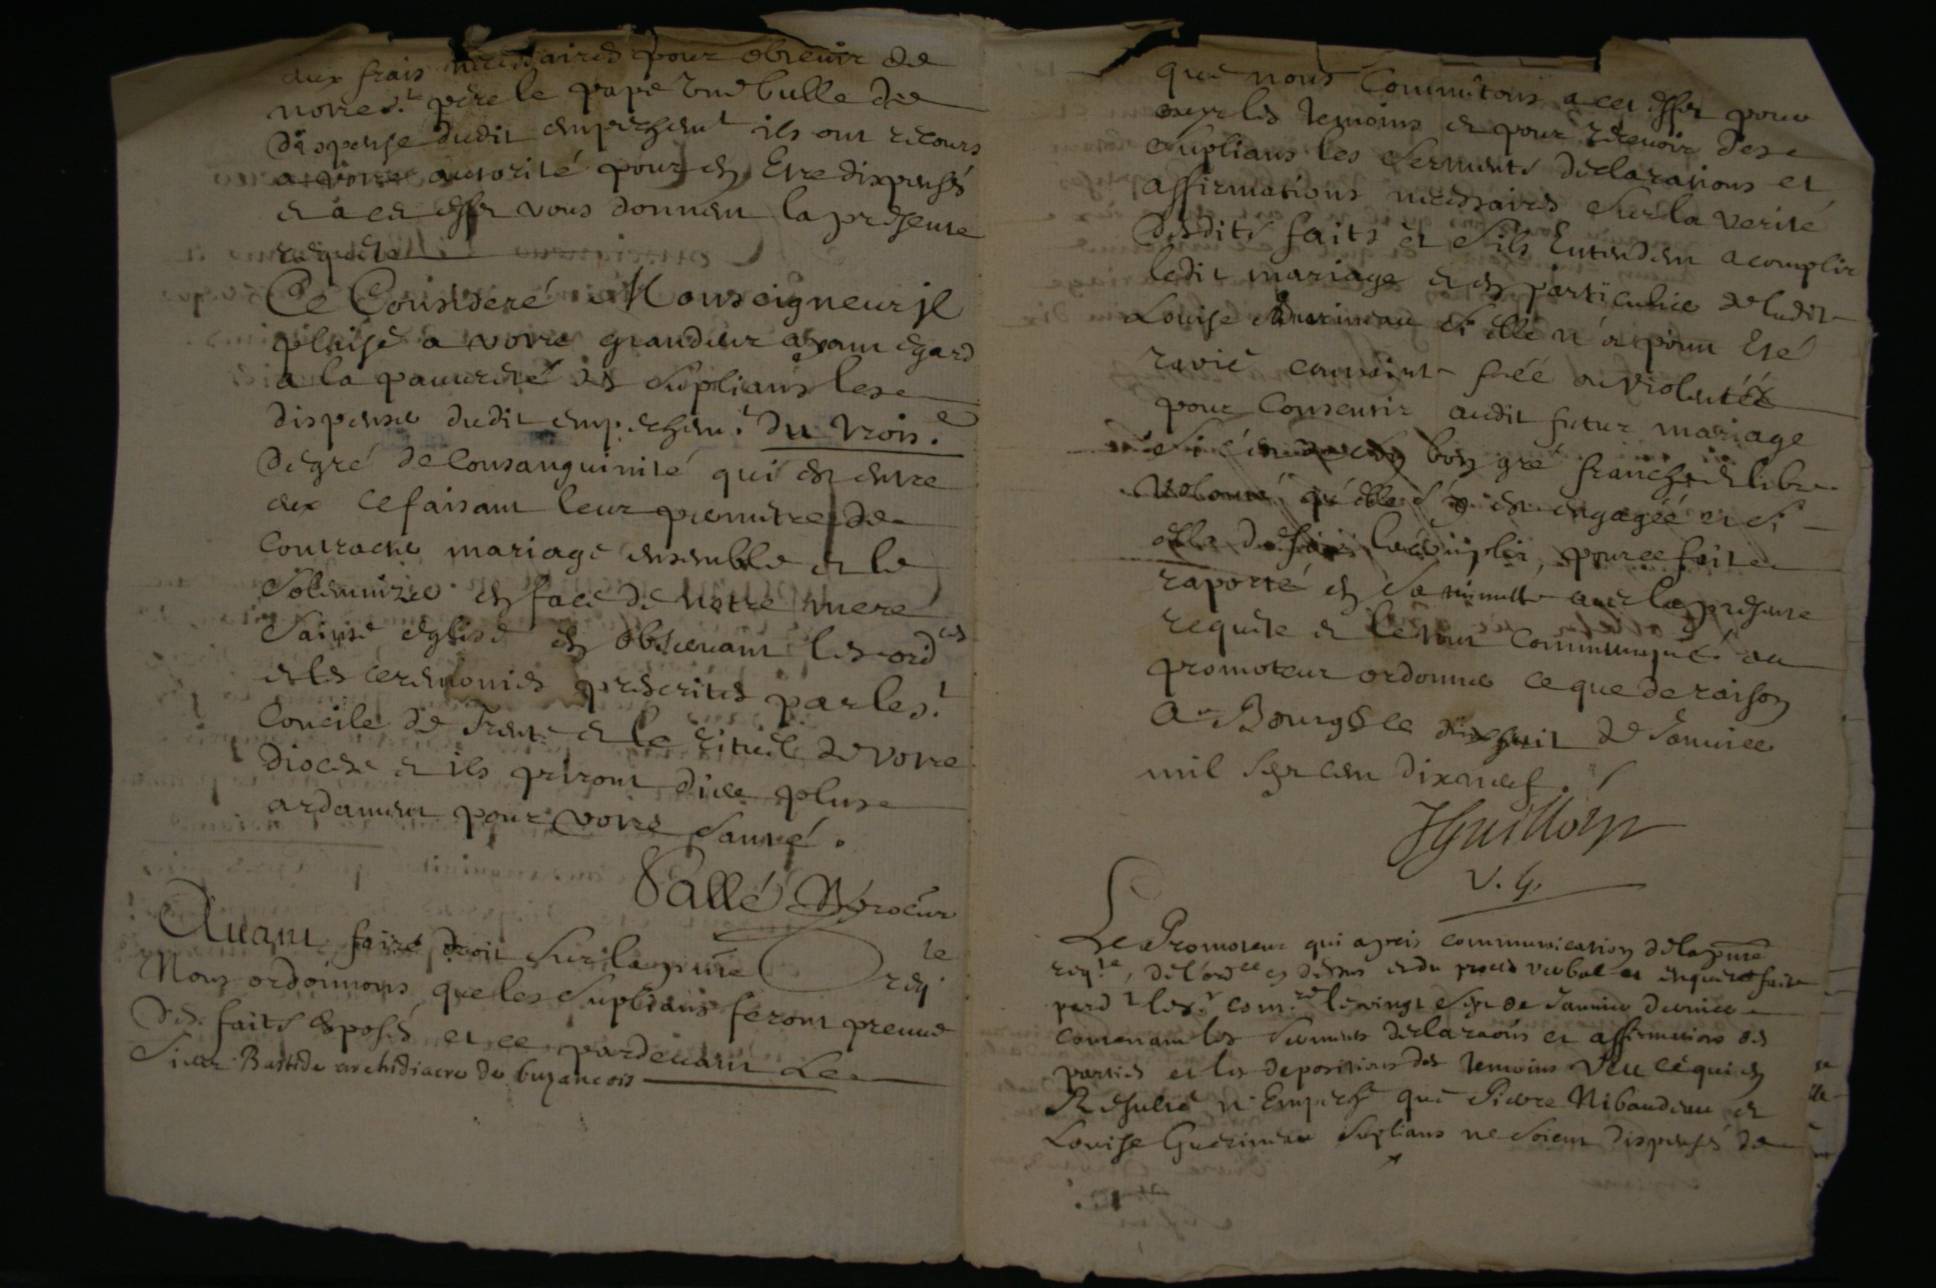 aux frais necessaires pour obtenir de
notre s.t pere le pape une bulle de
dispense dudit empeschem.t ils ont recours
a votre autorité pour en Etre dispensés
et a cet effet vous donnent la presente
requete
Ce Consideré Monseigneur jl
plaise a votre grandeur ayant egard
a la pauvreté des suplians les
dispenser dudit empechem.t du trois.e
degré de Consanguinité qui est entre
eux ce faisant leur permettre de
contracter mariage ensemble et le
solemnizer en face de notre mere
sainte eglise en observant les ord.es
et les ceremonies prescrites par le s.t
Concile de Trente et le rituel de votre
diocese et ils priront dieu plus
ardament pour votre santé.
Sallé Proceur
Avant faire droit sur la pnte req.te
Nous ordonnons que les suplians feront preuve
des faits exposés et ce pardevant Le
Sieur Bastide archidiacre de buzancois
que nous Commêtons a cet effet pour
ouyr les temoins et pour recevoir des
suplians les serments declarations et
affirmations necessaires sur la verité
desdits faits et s'ils Entendent acomplir
ledit mariage et en particulier de ladite
Louise Guerineau si elle n'a point Eté
ravie contrainte seée ou violentée
pour Consentir audit futur mariage
si c'est de son bon gré franche et libre
volonté qu'elle s'y est engagée et si
elle desire l'accomplir, pour ce fait
raporté en sa minutte avec la presente
requete et le tout Communiqué au
promoteur ordonner ce que de raison
A Bourges ce dixhuit de Janvier
mil sept cent dixneuf.
JGuillorp
V. G.
Le Promoteur qui a pris communication de la pnte
req.te, de l'ord.ce cy dessus et du procés verbal et enquete faite
pard.t led.s.r com.re le vingt sept de Janvier dernier
contenant les serments declaraons et affirmations des
parties et les depositions des temoins Veu ce qui en
Resulte n'Empeche que Pierre Nibaudeau et
Louise Guerineau suplians ne soient dispensés de